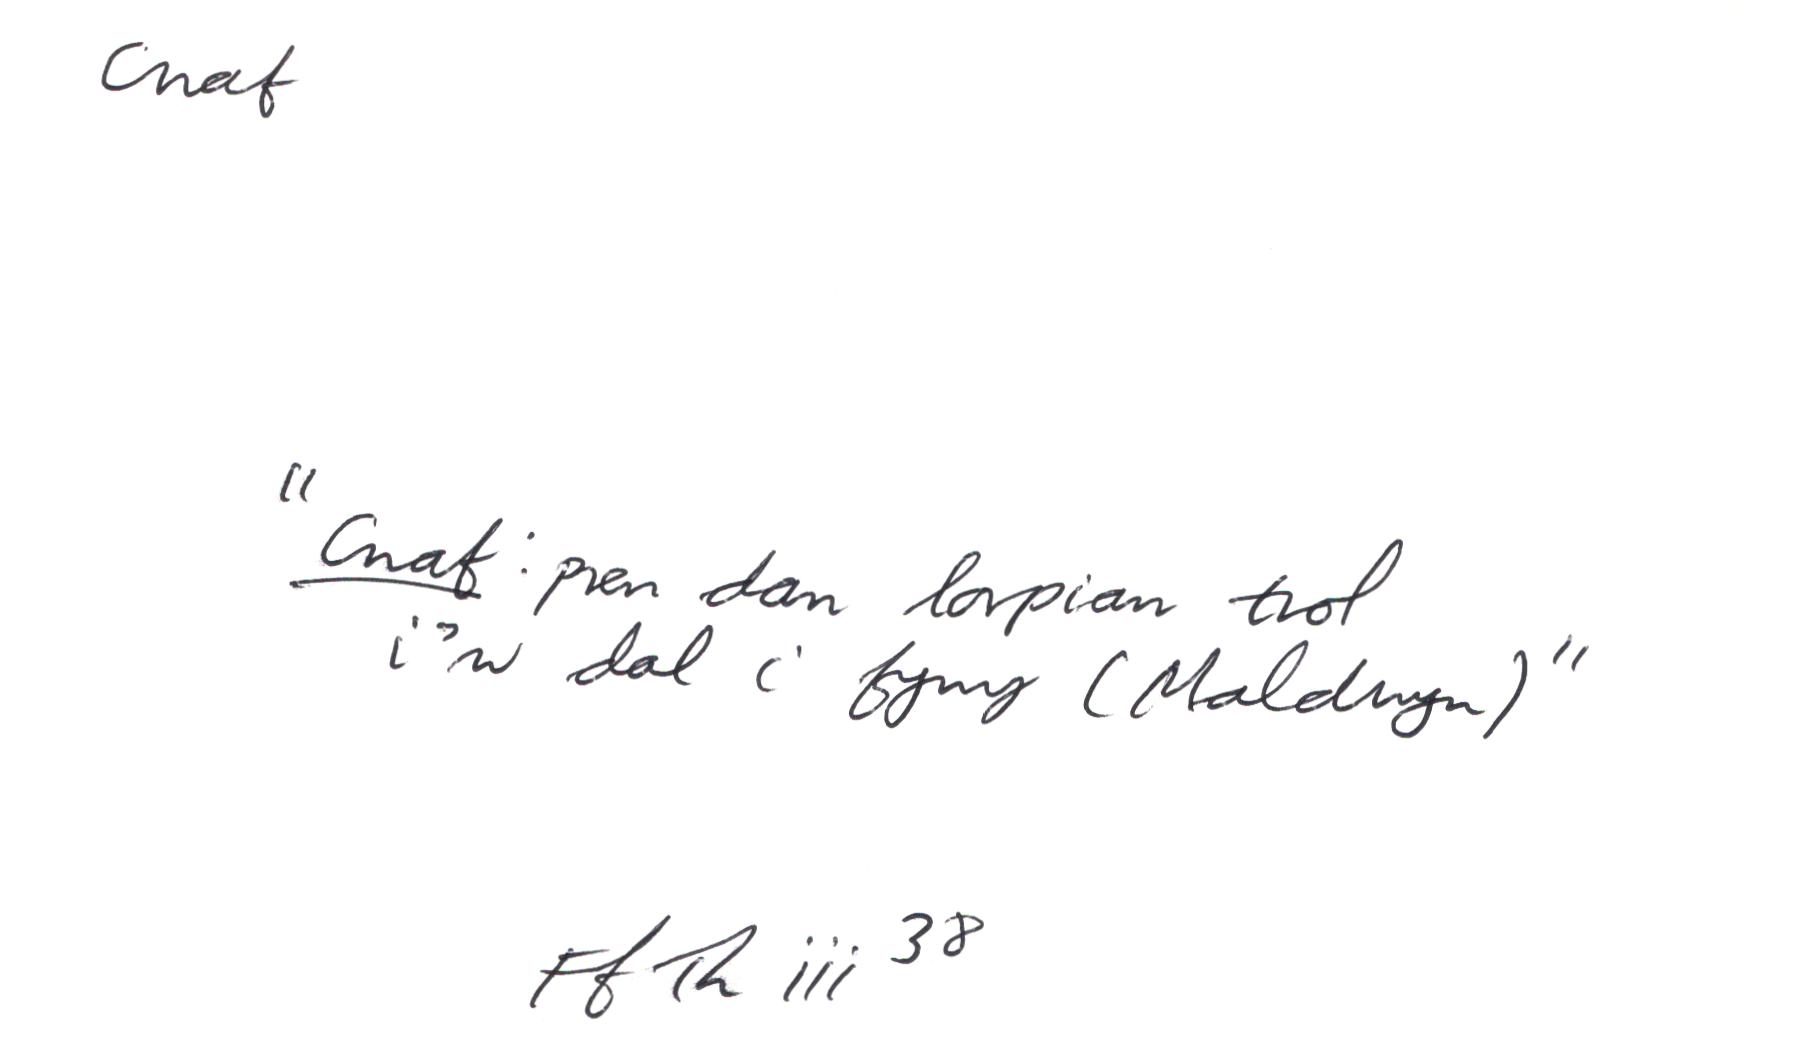 Cnaf
"Cnaf: pren dan lorpian trol
i'w dal i fyny (Maldwyn)"
Ff Th iii 38